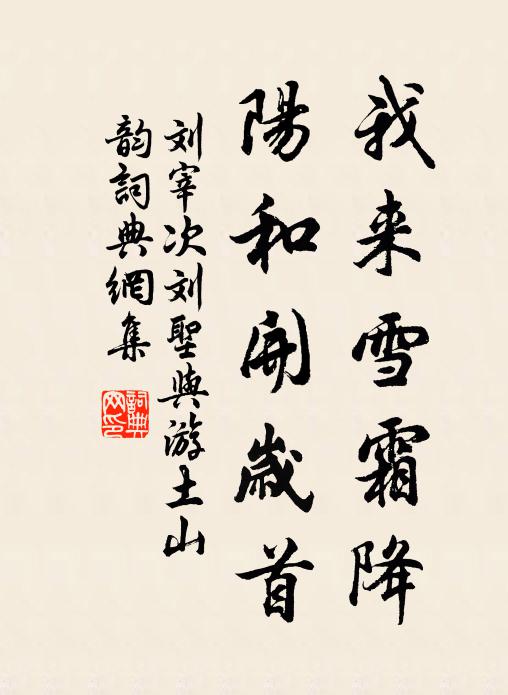 我来雪霜降
陽和開歲首
刘宰次刘聖與游土山
韵詞典網集
詞典
网印